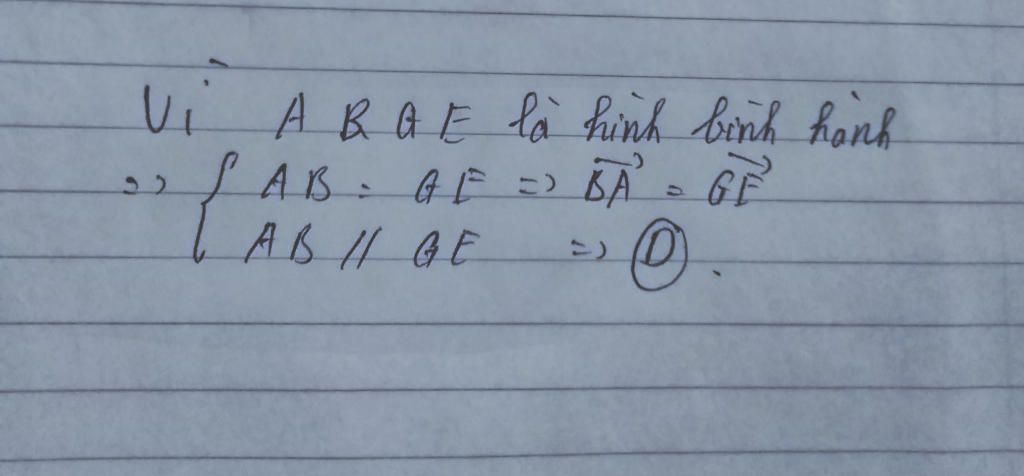 Vì A B G E là hình bình hành
=> { AB = GE => \overrightarrow{BA} = \overrightarrow{GE}
AB // GE => D.